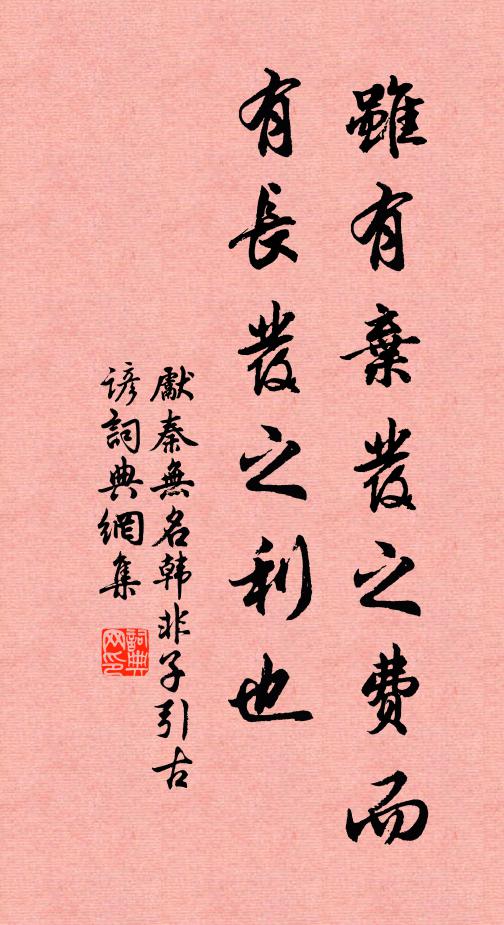 雖有棄發之費而
有長發之利也
獻秦無名韩非子引古
諺詞典網集
詞典
网印